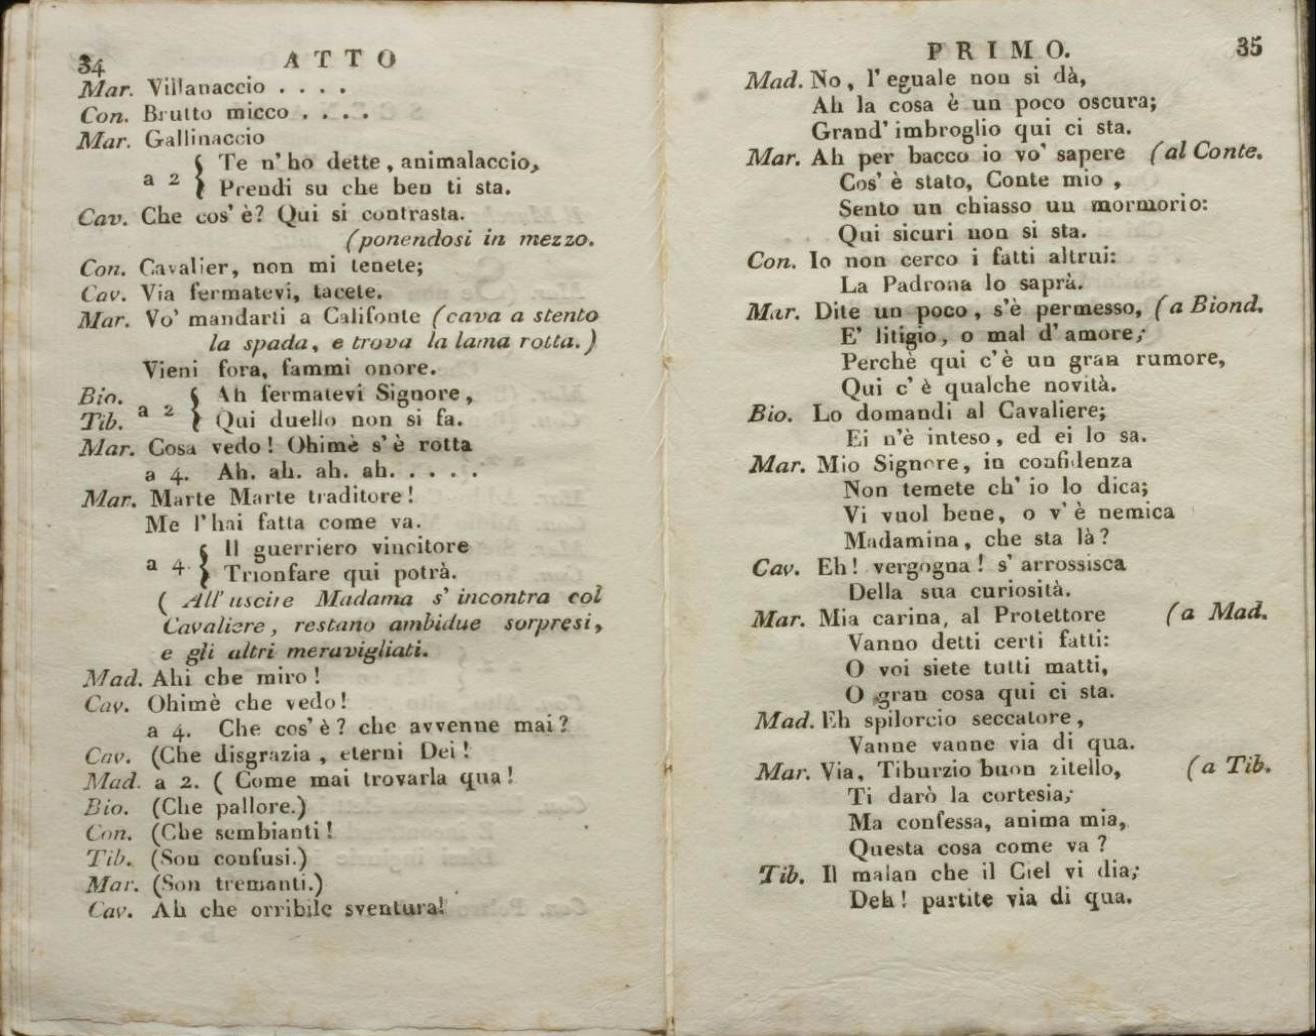 34 ATTO
Mar. Villanaccio . . . .
Con. Brutto micco . . . .
Mar. Gallinaccio
a 2 { Te n' ho dette, animalaccio,
Prendi su che ben ti sta.
Cav. Che cos' è? Qui si contrasta.
(ponendosi in mezzo.
Con. Cavalier, non mi tenete;
Cav. Via fermatevi, tacete.
Mar. Vo' mandarti a Califonte (cava a stento
la spada, e trova la lama rotta.)
Vieni fora, fammi onore.
Bio. a 2 { Ah fermatevi Signore,
Tib. Qui duello non si fa.
Mar. Cosa vedo! Ohimè s' è rotta
a 4. Ah. ah. ah. ah. . . . . .
Mar. Marte Marte traditore!
Me l' hai fatta come va.
a 4. { Il guerriero vincitore
Trionfare qui potrà.
( All' uscire Madama s' incontra col
Cavaliere, restano ambidue sorpresi,
e gli altri meravigliati.
Mad. Ahi che miro!
Cav. Ohimè che vedo!
a 4. Che cos' è? che avvenne mai?
Cav. (Che disgrazia, eterni Dei!
Mad. a 2. ( Come mai trovarla qua!
Bio. (Che pallore.)
Con. (Che sembianti!
Tib. (Son confusi.)
Mar. (Son tremanti.)
Cav. Ah che orribile sventura!
PRIMO. 35
Mad. No, l' eguale non si dà,
Ah la cosa è un poco oscura;
Grand' imbroglio qui ci sta.
Mar. Ah per bacco io vo' sapere (al Conte.
Cos' è stato, Conte mio,
Sento un chiasso un mormorio:
Qui sicuri non si sta.
Con. Io non cerco i fatti altrui:
La Padrona lo saprà.
Mar. Dite un poco, s'è permesso, (a Biond.
E' litigio, o mal d' amore;
Perchè qui c'è un gran rumore,
Qui c' è qualche novità.
Bio. Lo domandi al Cavaliere;
Ei n'è inteso, ed ei lo sa.
Mar. Mio Signore, in confidenza
Non temete ch' io lo dica;
Vi vuol bene, o v' è nemica
Madamina, che sta là?
Cav. Eh! vergogna! s' arrossisca
Della sua curiosità.
Mar. Mia carina, al Protettore (a Mad.
Vanno detti certi fatti:
O voi siete tutti matti,
O gran cosa qui ci sta.
Mad. Eh spilorcio seccatore,
Vanne vanne via di qua.
Mar. Via, Tiburzio buon zitello, (a Tib.
Ti darò la cortesia;
Ma confessa, anima mia,
Questa cosa come va?
Tib. Il malan che il Ciel vi dia;
Deh! partite via di qua.